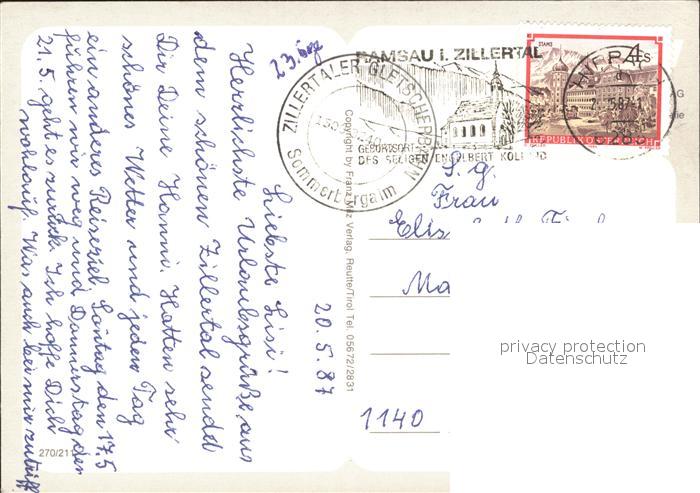 23. Aug
20. 5. 87
Liebste Lisi!
Herzlichste Urlaubsgrüße aus
dem schönen Zillertal sendet
Dir Deine Hanni. Hatten sehr
schönes Wetter und jeden Tag
ein anderes Reiseziel. Sontag den 17.5
fuhren wir weg und Donnerstag den
21.5. geht es zurück. Ich hoffe Dich
wohlauf. Was auch bei mir zutrifft
270/211
Copyright by Franz Milz Verlag, Reutte/Tirol Tel. 05672/2831
ZILLERTALER GLETSCHERBAHN
Sommerbergalm
RAMSAU I. ZILLERTAL
GEBURTSORT
DES SELIGEN ENGELBERT KOLLAND
STAMS
4 S
REPUBLIK ÖSTERREICH
S. g.
Frau
Elis
Ma
1140
privacy protection
Datenschutz